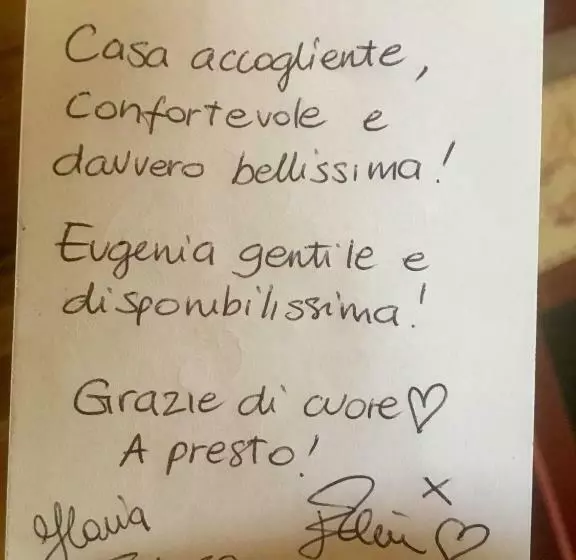 Casa accogliente,
Confortevole e
davvero bellissima!
Eugenia gentile e
disponibilissima!
Grazie di cuore♡
A presto!
x
Flavia
♡